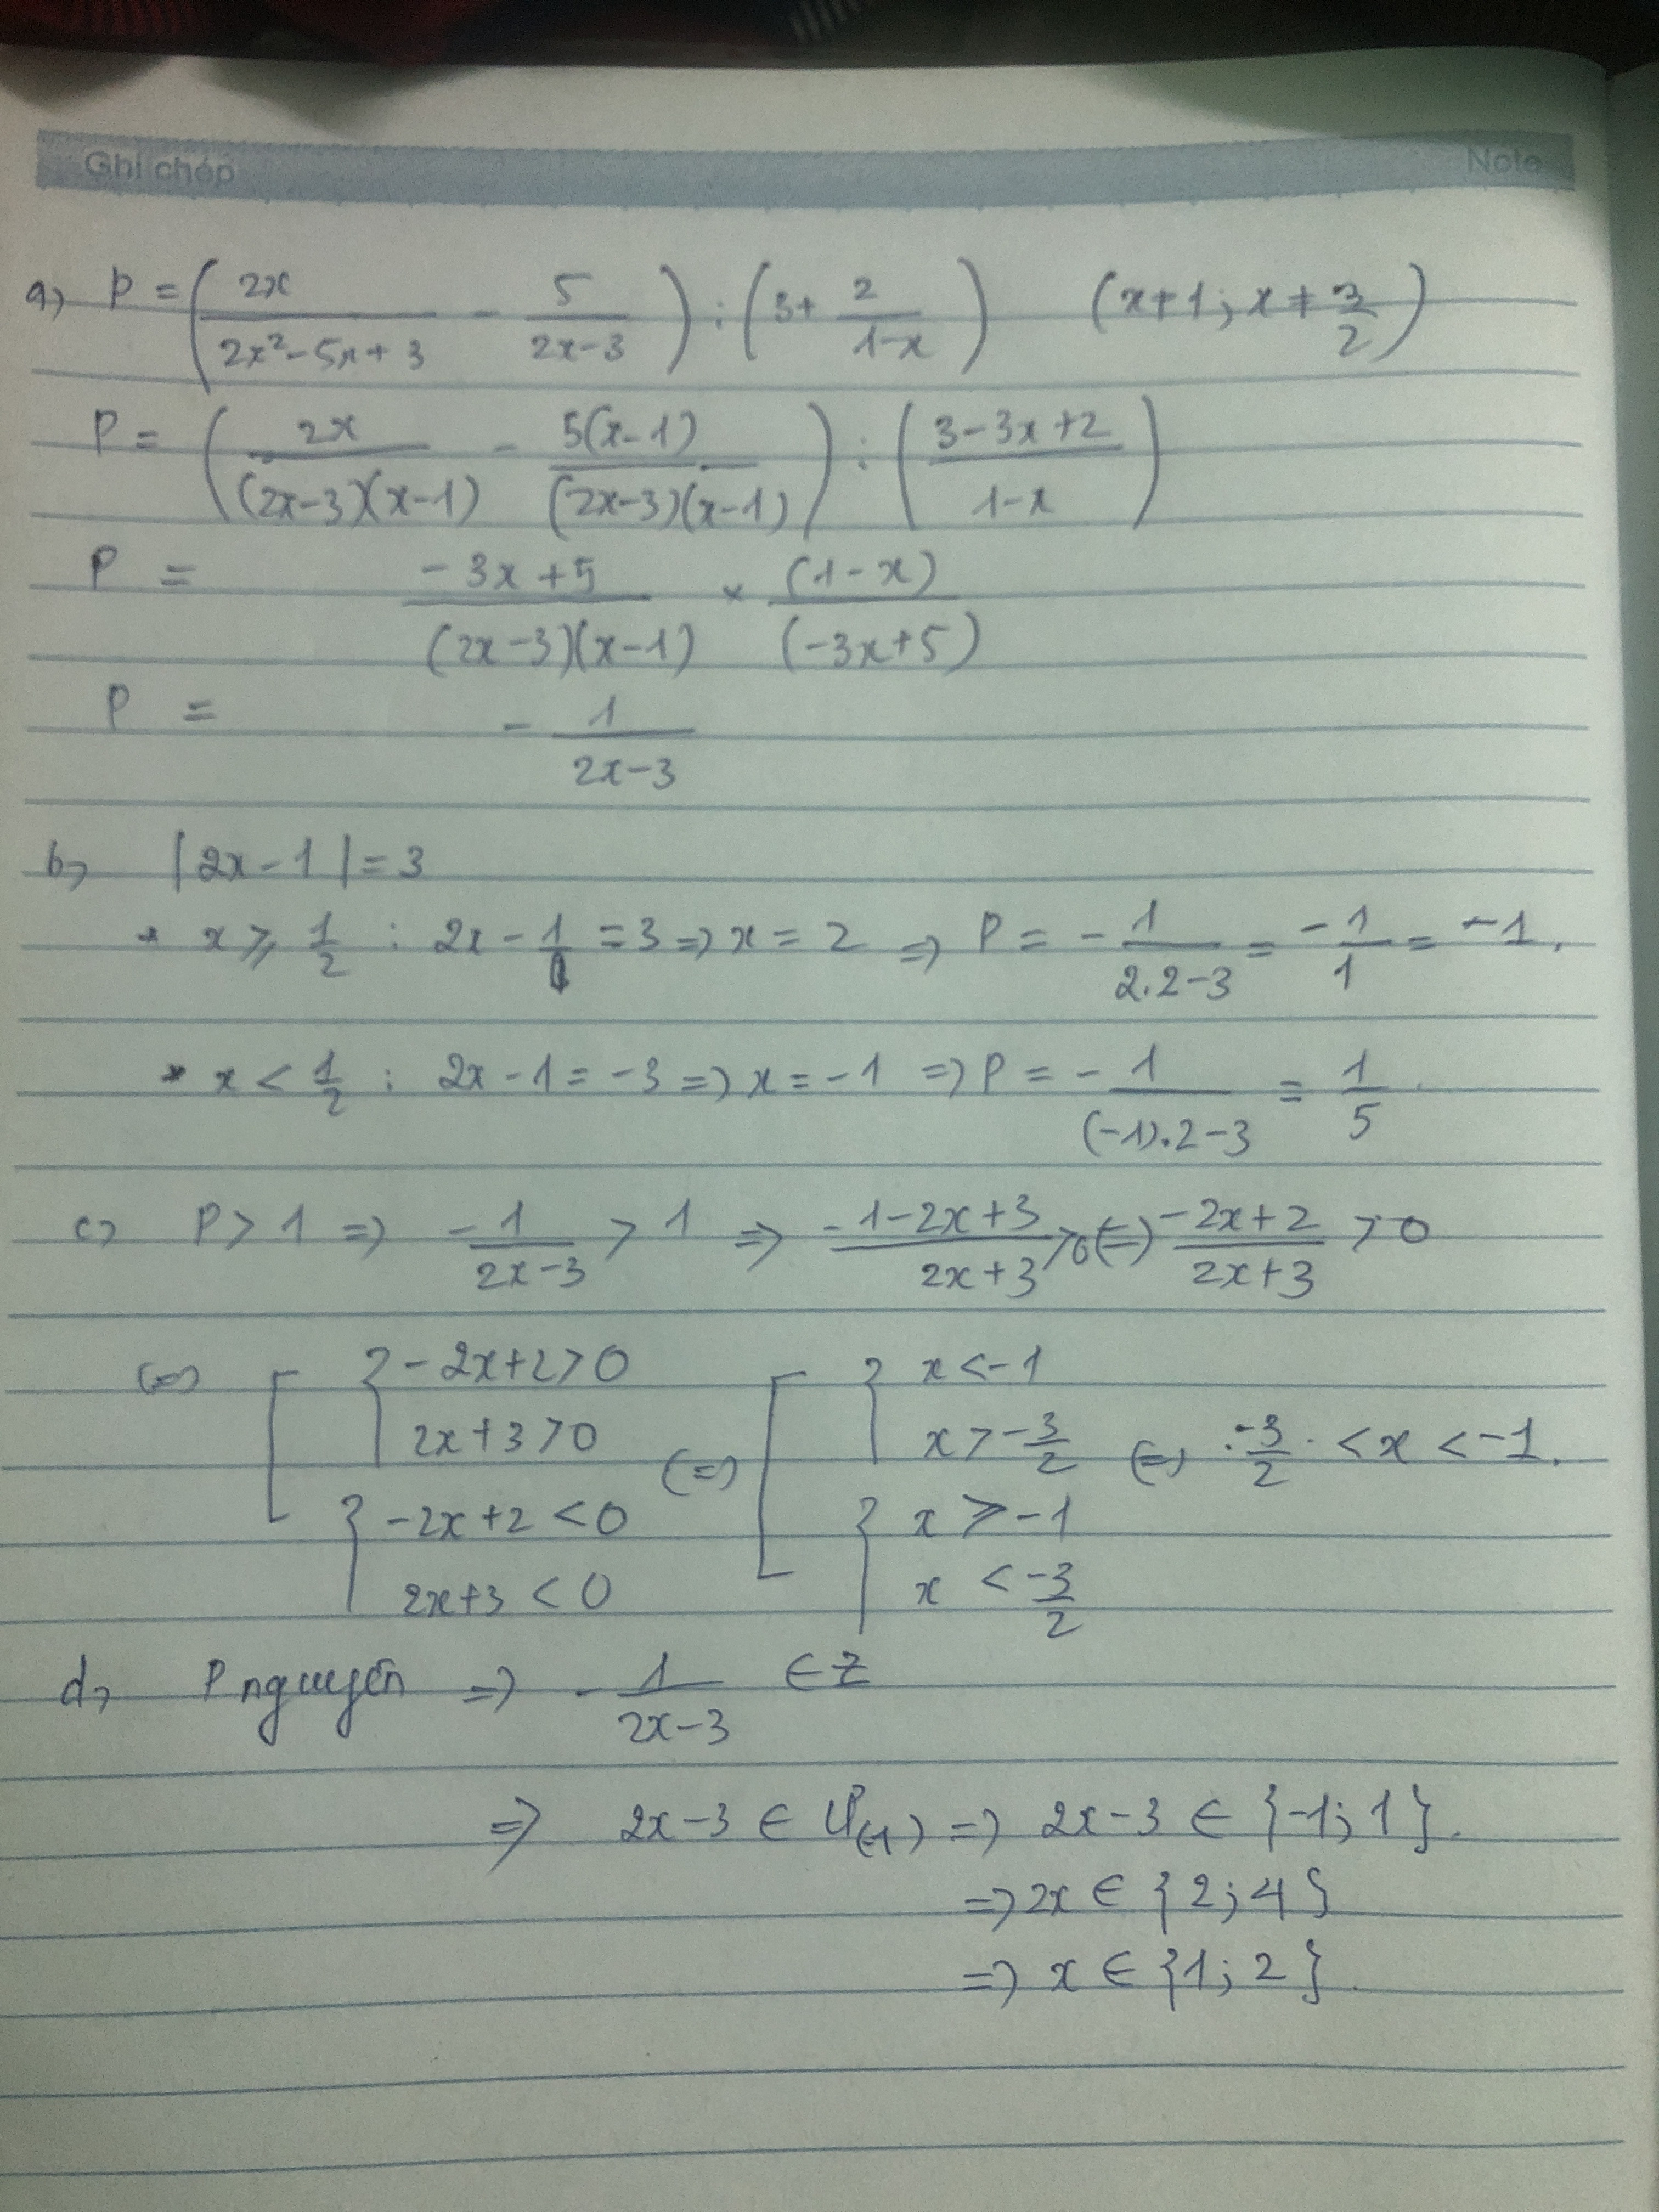 Ghi chép Note
a, P = (2x/(2x²-5x+3) - 5/(2x-3)) : (3+ 2/(1-x)) (x≠1; x≠3/2)
P = (2x/((2x-3)(x-1)) - 5(x-1)/((2x-3)(x-1))) : ((3-3x+2)/(1-x))
P = (-3x+5)/((2x-3)(x-1)) × (1-x)/(-3x+5)
P = -1/(2x-3)
b, |2x-1|=3
* x ≥ 1/2 : 2x-1=3 => x=2 => P = -1/(2.2-3) = -1/1 = -1.
* x < 1/2 : 2x-1=-3 => x=-1 => P = -1/((-1).2-3) = 1/5.
c, P>1 => -1/(2x-3) > 1 => (-1-2x+3)/(2x+3) >0 (=) (-2x+2)/(2x+3) >0
(=) [ { -2x+2>0 (=) [ { x<-1
2x+3>0 x>-3/2 (=) -3/2 < x < -1.
{ -2x+2<0 { x ≥ -1
2x+3<0 x < -3/2
d, P nguyên => -1/(2x-3) ∈ Z
=> 2x-3 ∈ Ư(-1) => 2x-3 ∈ {-1; 1}.
=> 2x ∈ {2; 4}
=> x ∈ {1; 2}.